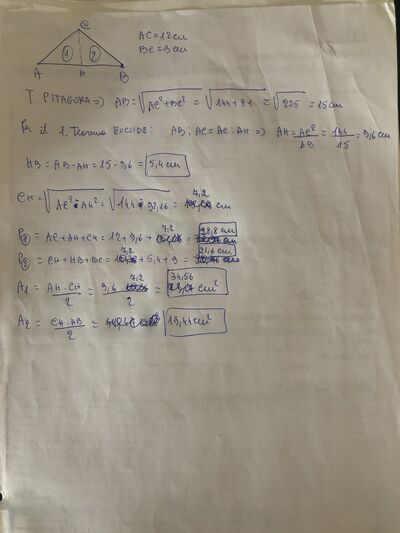 C
AC = 12 cm
BC = 9 cm
1 2
A H B
T. PITAGORA => AB = √AC² + BC² = √144 + 81 = √225 = 15 cm
Per il 1. Teorema EUCLIDE: AB : AC = AC : AH => AH = AC²/AB = 144/15 = 9,6 cm
HB = AB - AH = 15 - 9,6 = 5,4 cm
CH = √AC² - AH² = √144 - 92,16 = 7,2
P1 = AC + AH + CH = 12 + 9,6 + 7,2 = 28,8 cm
P2 = CH + HB + BC = 7,2 + 5,4 + 9 = 21,6 cm
A1 = AH · CH/2 = 9,6 · 7,2/2 = 34,56 cm²
A2 = CH · AB/2 = 19,44 cm²